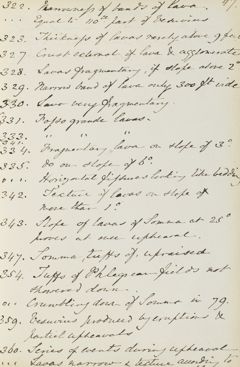 322. Narrowness of bands of lava. 47.
" Equal to 10th part of Vesuvius
323. Thickness of lavas rarely above 9 feet
327. Crust external of lava & agglomerate
328. Lavas fragmentary, if slope above 2°
329. Narrow band of lava only 300 ft wide
330. Lava very fragmentary.
331. Fosso grande lavas.
333. " " "
334. Fragmentary lava on slope of 3°
335. do on slope of 6°.
" Horizontal fissures looking like bedding
342. Texture of lavas on slope of
more than 1°
343. Slope of lavas of Somma at 25°
proves at use upheaval.
347. Somma, tuffs of, upraised
354. Tuffs of Phlegraean fields not
showered down.
" Crumbling down of Somma in 79.
359. Vesuvius produced by eruptions &
partial upheavals
360. Series of events during upheaval
" Lavas narrow & texture according to